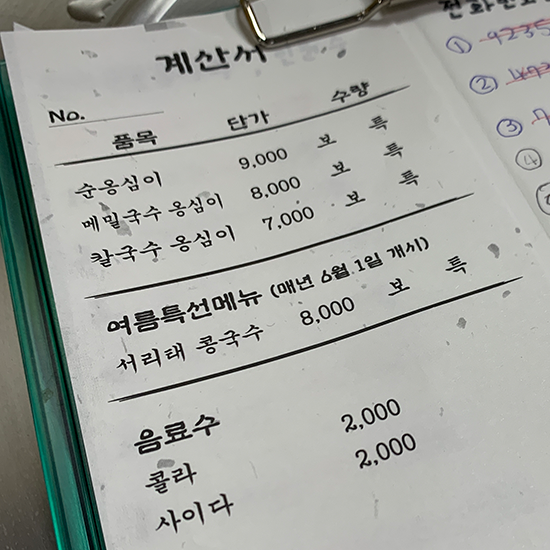 계산서
No.
품목 단가 수량
순옹심이 9,000 보 특
메밀국수 옹심이 8,000 보 특
칼국수 옹심이 7,000 보 특
여름특선메뉴 (매년 6월 1일 개시)
서리태 콩국수 8,000 보 특
음료수
콜라 2,000
사이다 2,000
①
②
③
④